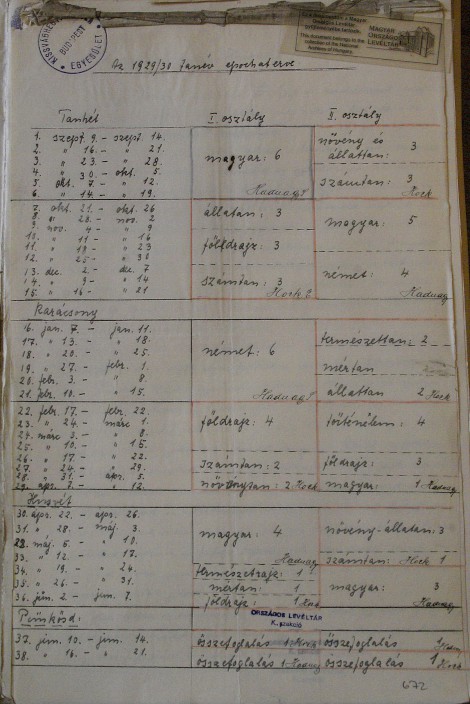 KISVÁRHEGYI
BUDAPEST
EGYESÜLET
MAGYAR
ORSZÁGOS
LEVÉLTÁR
Az 1929/30 tanév epochaterve
Tanhét I. osztály II. osztály
1. szept. 9. - szept. 14.
2. " 16. - " 21
3. " 23. - " 28.
4. " 30 - okt. 5
5. okt. 7. - " 12.
6. " 14. - " 19.
magyar: 6
növény és
állattan: 3
számtan: 3
Hock
7. okt. 21. - okt. 26
8. " 28. - nov. 2
9. nov. 4 - " 9
10. " 11 - " 16
11. " 18 - " 23
12. " 25 - " 30
13. dec. 2 - dec. 7
14. " 9 - " 14
15. " 16 - " 21
állatan: 3
földrajz: 3
számtan: 3
magyar: 5
német: 4
Karácsony
16. jan. 7. - jan. 11.
17. " 13. - " 18.
18. " 20. - " 25.
19. " 27. - febr. 1.
20. febr. 3. - " 8.
21. febr. 10. - " 15.
német: 6
természettan: 2
mértan
állattan 2 Hock
22. febr. 17. - febr. 22.
23. " 24. - márc 1.
24. márc 3. - " 8.
25. " 10. - " 15.
26. " 17. - " 22
27. " 24. - " 29.
28. " 31. - apr. 5.
29. apr. " 12.
földrajz: 4
számtan: 2
növénytan: 2 Hock
történelem: 4
földrajz: 3
magyar: 1
Husvét
30. apr. 22. - apr. 26.
31. " 28. - máj. 3.
32. máj. 5 - " 10.
33. " 12. - " 17.
34. " 19. - " 24.
35. " 26. - " 31.
36. jún. 2 - jún. 7.
magyar: 4
természetrajz: 1
mértan: 1
földrajz: 1
növény-állatan: 3
számtan: Hock 1
magyar: 3
ORSZÁGOS LEVÉLTÁR
K. szekció
Pünkösd:
37. jún. 10. - jún. 14.
38. " 16. - " 21.
összefoglalás 1 Hock összefoglalás 1
összefoglalás 1 összefoglalás 1 Hock
672